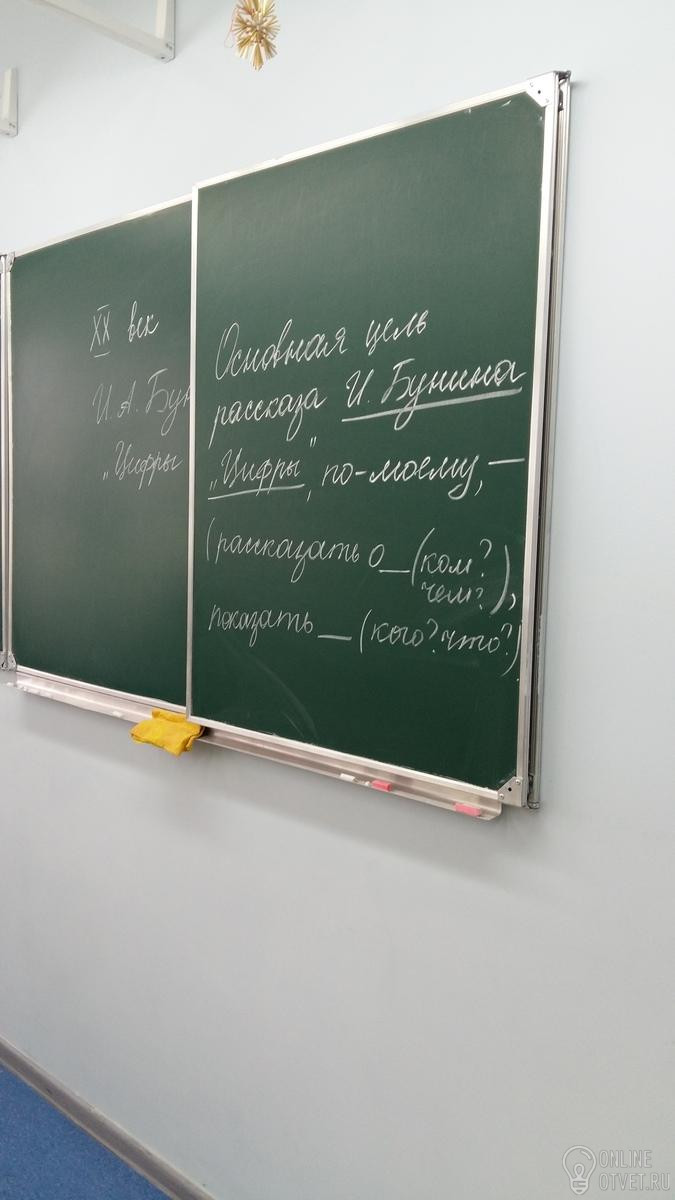 XX век
И. А. Бун
„Цифры
Основная цель
рассказа И. Бунина
„Цифры", по-моему, —
(рассказать о _ (ком?
чем?),
показать _ (кого? что?)
ONLINE
OTVET.RU